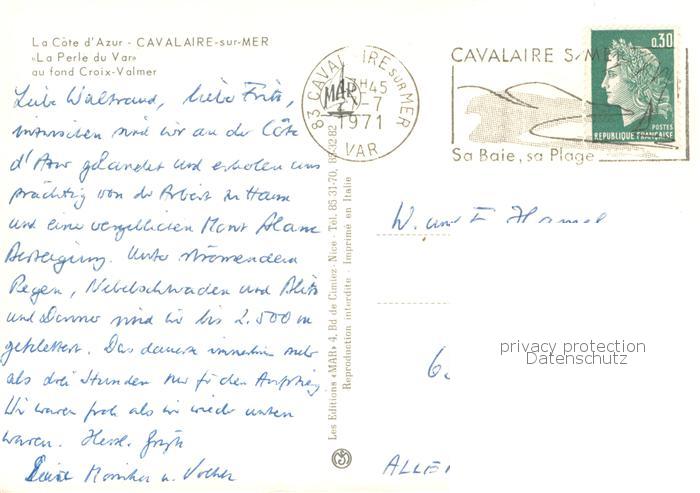 La Côte d'Azur - CAVALAIRE-sur-MER
«La Perle du Var»
au fond Croix-Valmer
Liebe Waltraud, lieber Fritz,
inzwischen sind wir an der Côte
d'Azur gelandet und erholen uns
prächtig von der Arbeit zu Haus
und einer vergeblichen Mont Blanc
Besteigung. Unter strömendem
Regen, Nebelschwaden und Blitz
und Donner sind wir bis 2.500 m
geklettert. Das dauerte immerhin mehr
als drei Stunden nur für den Aufstieg.
Wir waren froh als wir wieder unten
waren. Herzl. Grüße
Monika u. Volker
83 CAVALAIRE SUR MER
13H45
-7
1971
VAR
MAR
CAVALAIRE S/MER
Sa Baie, sa Plage
0,30
POSTES
REPUBLIQUE FRANÇAISE
Les Editions «MAR» 4, Bd de Cimiez - Nice - Tel. 85 31-70, 85-32 82
Reproduction interdite - Imprimé en Italie
W. und F.
6
ALLE
privacy protection
Datenschutz